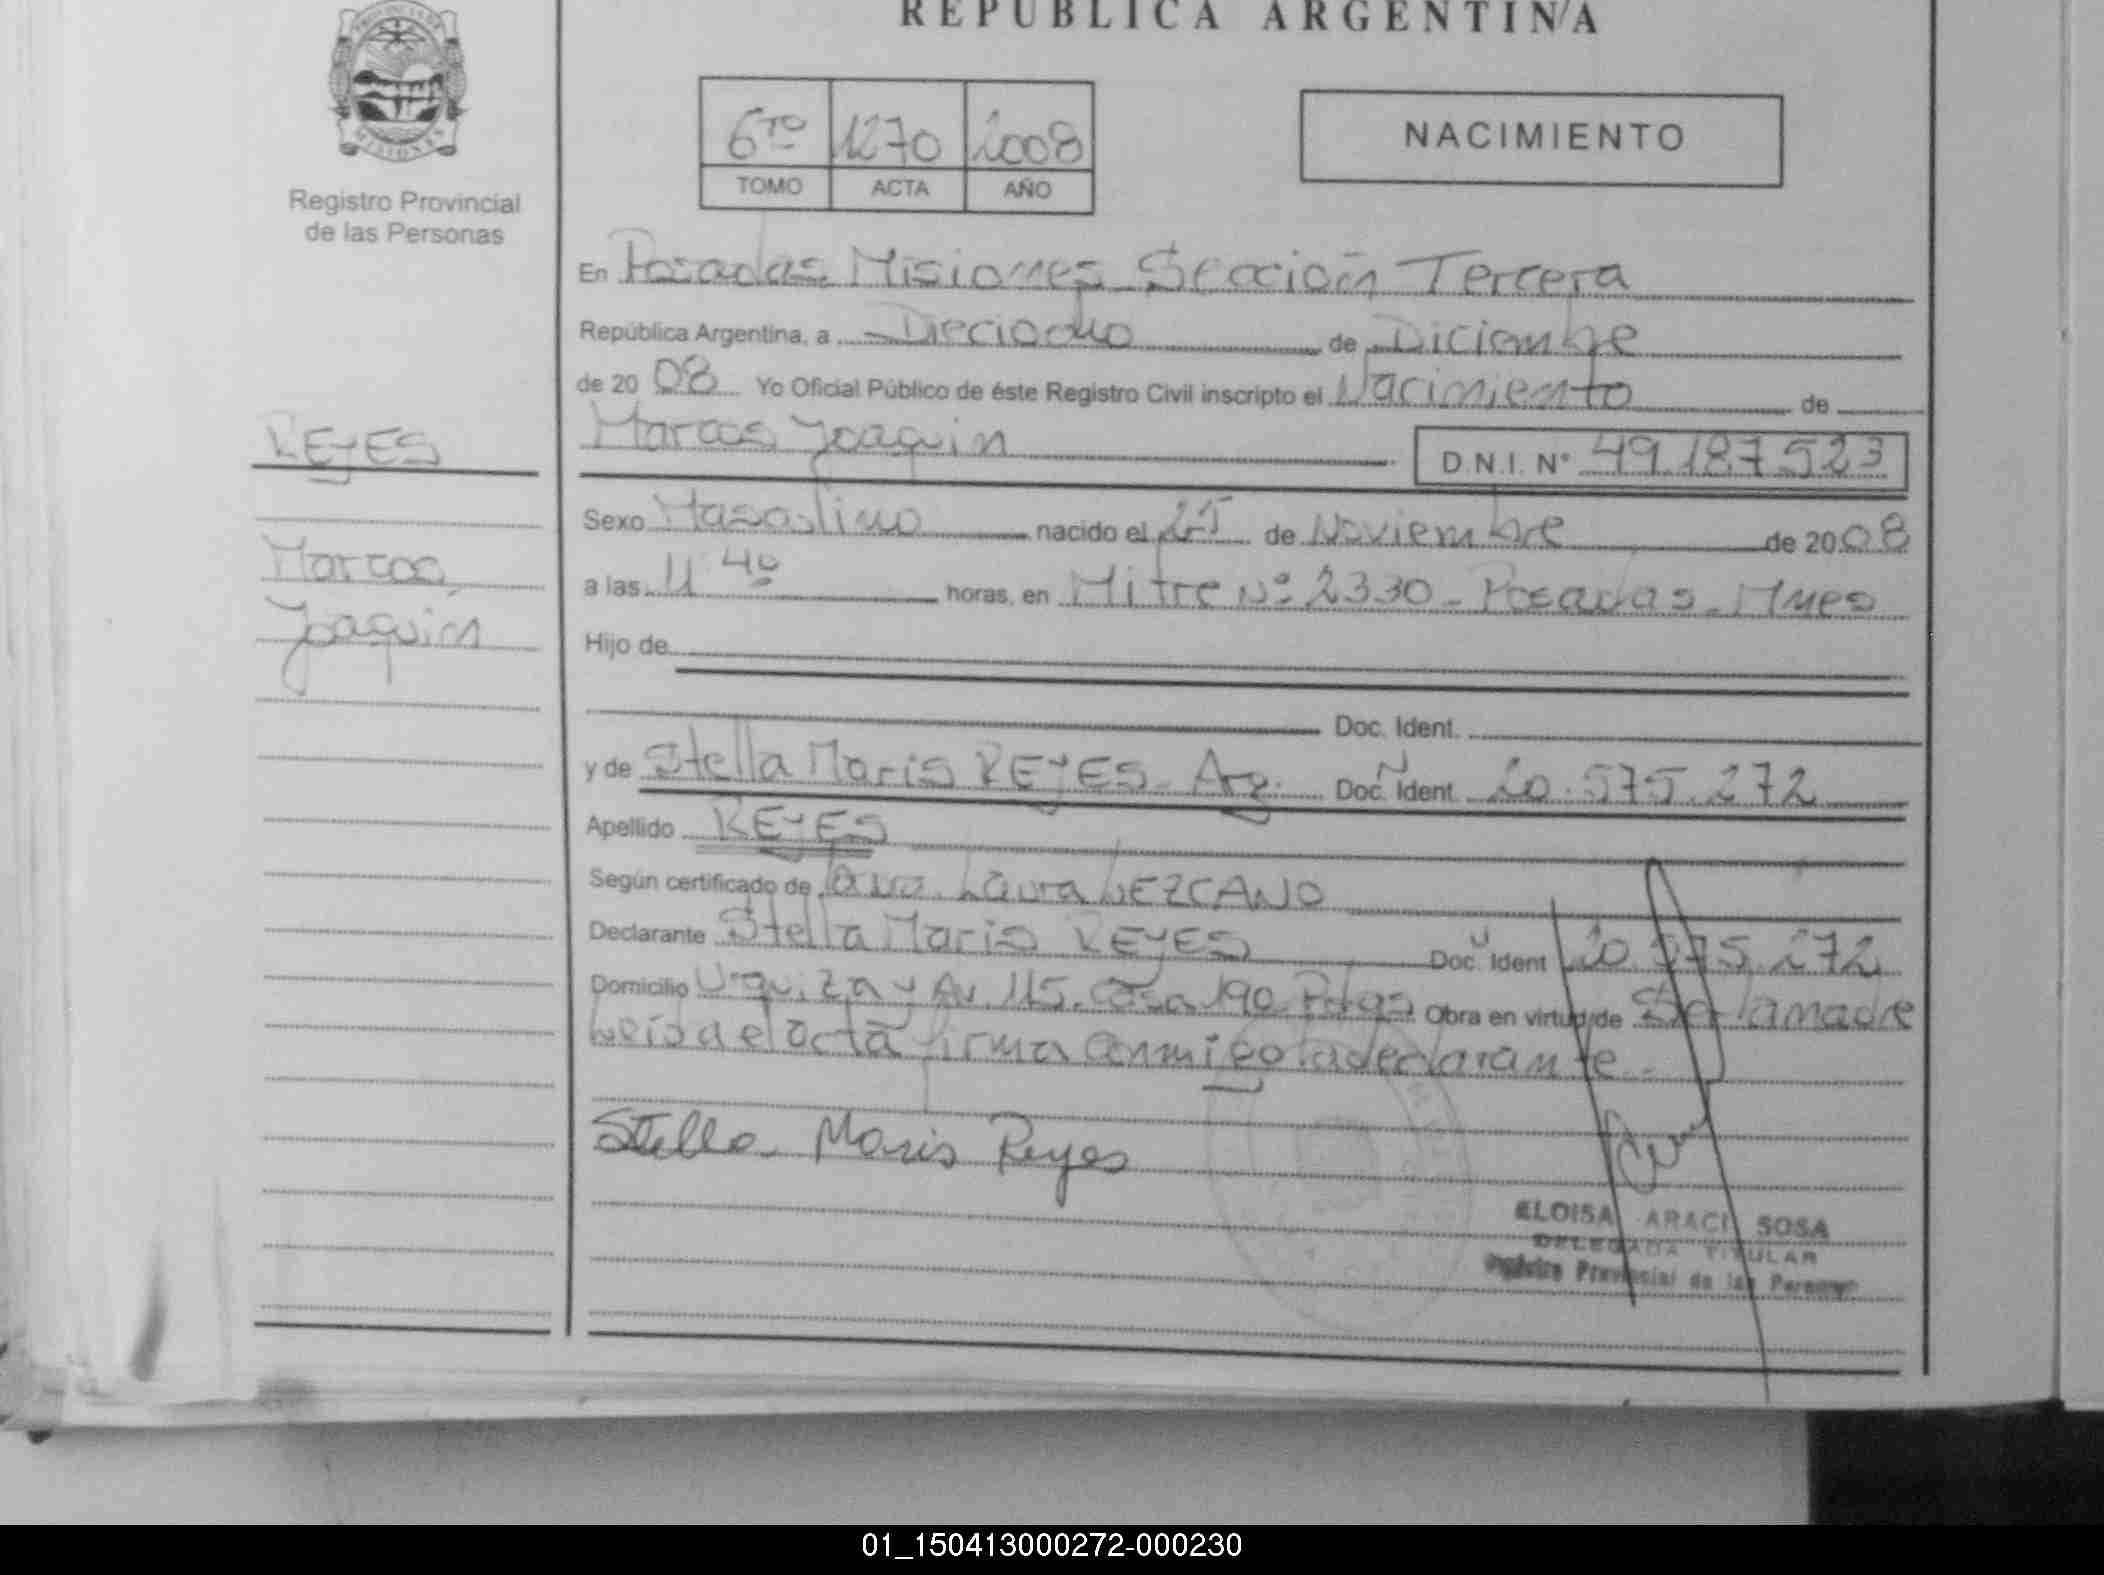 REPUBLICA ARGENTINA
MISIONES
Registro Provincial
de las Personas
6TO 1270 2008
TOMO ACTA AÑO
NACIMIENTO
En Posadas Misiones Sección Tercera
República Argentina, a Dieciocho de Diciembre
de 20 08 Yo Oficial Público de éste Registro Civil inscripto el Nacimiento de
Marcos Joaquin
D.N.I. N° 49.187.523
REYES
Marcos
Joaquin
Sexo Masculino nacido el de Noviembre de 20 08
a las 11 40 horas, en Mitre Nº 2330 - Posadas - Mnes
Hijo de
Doc. Ident.
y de Stella Maris REYES - Arg. Doc. Ident. 20.575.272
Apellido REYES
Según certificado de Laura LEZCANO
Declarante Stella Maris REYES Doc. Ident 20.575.272
Domicilio Urquiza y Av 115. Casa 190 Pdas Obra en virtud de Ser la madre
Leida el acta firma conmigo la declarante.-
Stella Maris Reyes
ELOISA ARACI SOSA
DELEGADA TITULAR
Registro Provincial de las Personas
01_150413000272-000230